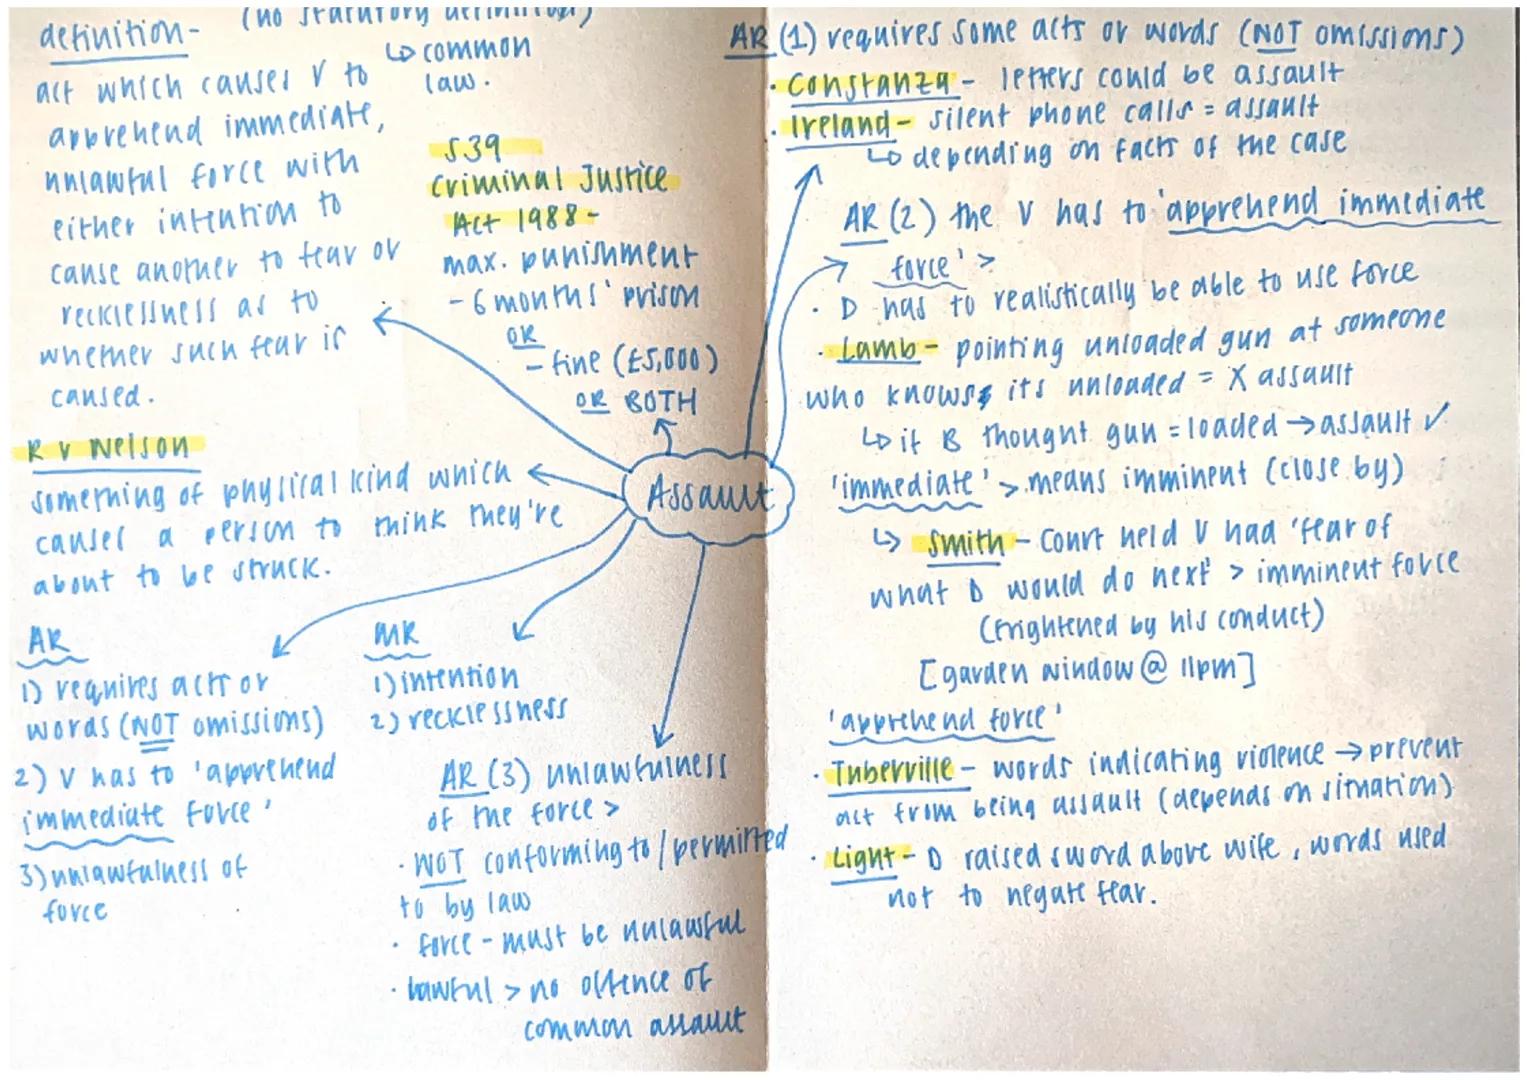 definition- (no statutory definition)
↳ common
law.
act which causes V to
apprehend immediate,
unlawful force with
either intention to
cause another to fear or
recklessness as to
whether such fear is
caused.
S39
Criminal Justice
Act 1988-
max. punishment
- 6 months' prison
OR
- fine (£5,000)
OR BOTH
R v Nelson
something of physical kind which
causes a person to think they're
about to be struck.
Assault
AR
1) requires acts or
words (NOT omissions)
2) V has to 'apprehend
immediate force'
3) unlawfulness of
force
MR
1) intention
2) recklessness
AR (3) unlawfulness
of the force >
· NOT conforming to / permitted
to by law
· force - must be unlawful
· lawful > no offence of
common assault
AR (1) requires some acts or words (NOT omissions)
· Constanza - letters could be assault
· Ireland - silent phone calls = assault
↳ depending on facts of the case
AR (2) the V has to 'apprehend immediate
force' >
· D has to realistically be able to use force
· Lamb - pointing unloaded gun at someone
who knows its unloaded = X assault
↳ if B thought gun = loaded → assault ✓
'immediate' > means imminent (close by)
↳ Smith - Court held V had 'fear of
what D would do next' > imminent force
(frightened by his conduct)
[garden window @ 11pm]
'apprehend force'
· Tuberville - words indicating violence → prevent
act from being assault (depends on situation)
· Light - D raised sword above wife, words used
not to negate fear.